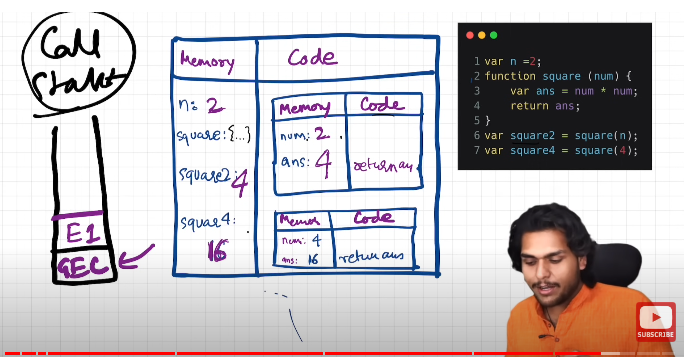 Call
Stack
Memory
Code
n: 2
square: {...}
square2: 4
squar4:
16
Memory
Code
num: 2
ans: 4
return an
Memor
Code
num: 4
ans: 16
return ans
E1
GEC
1 var n =2;
2 function square (num) {
3 var ans = num * num;
4 return ans;
5 }
6 var square2 = square(n);
7 var square4 = square(4);
SUBSCRIBE